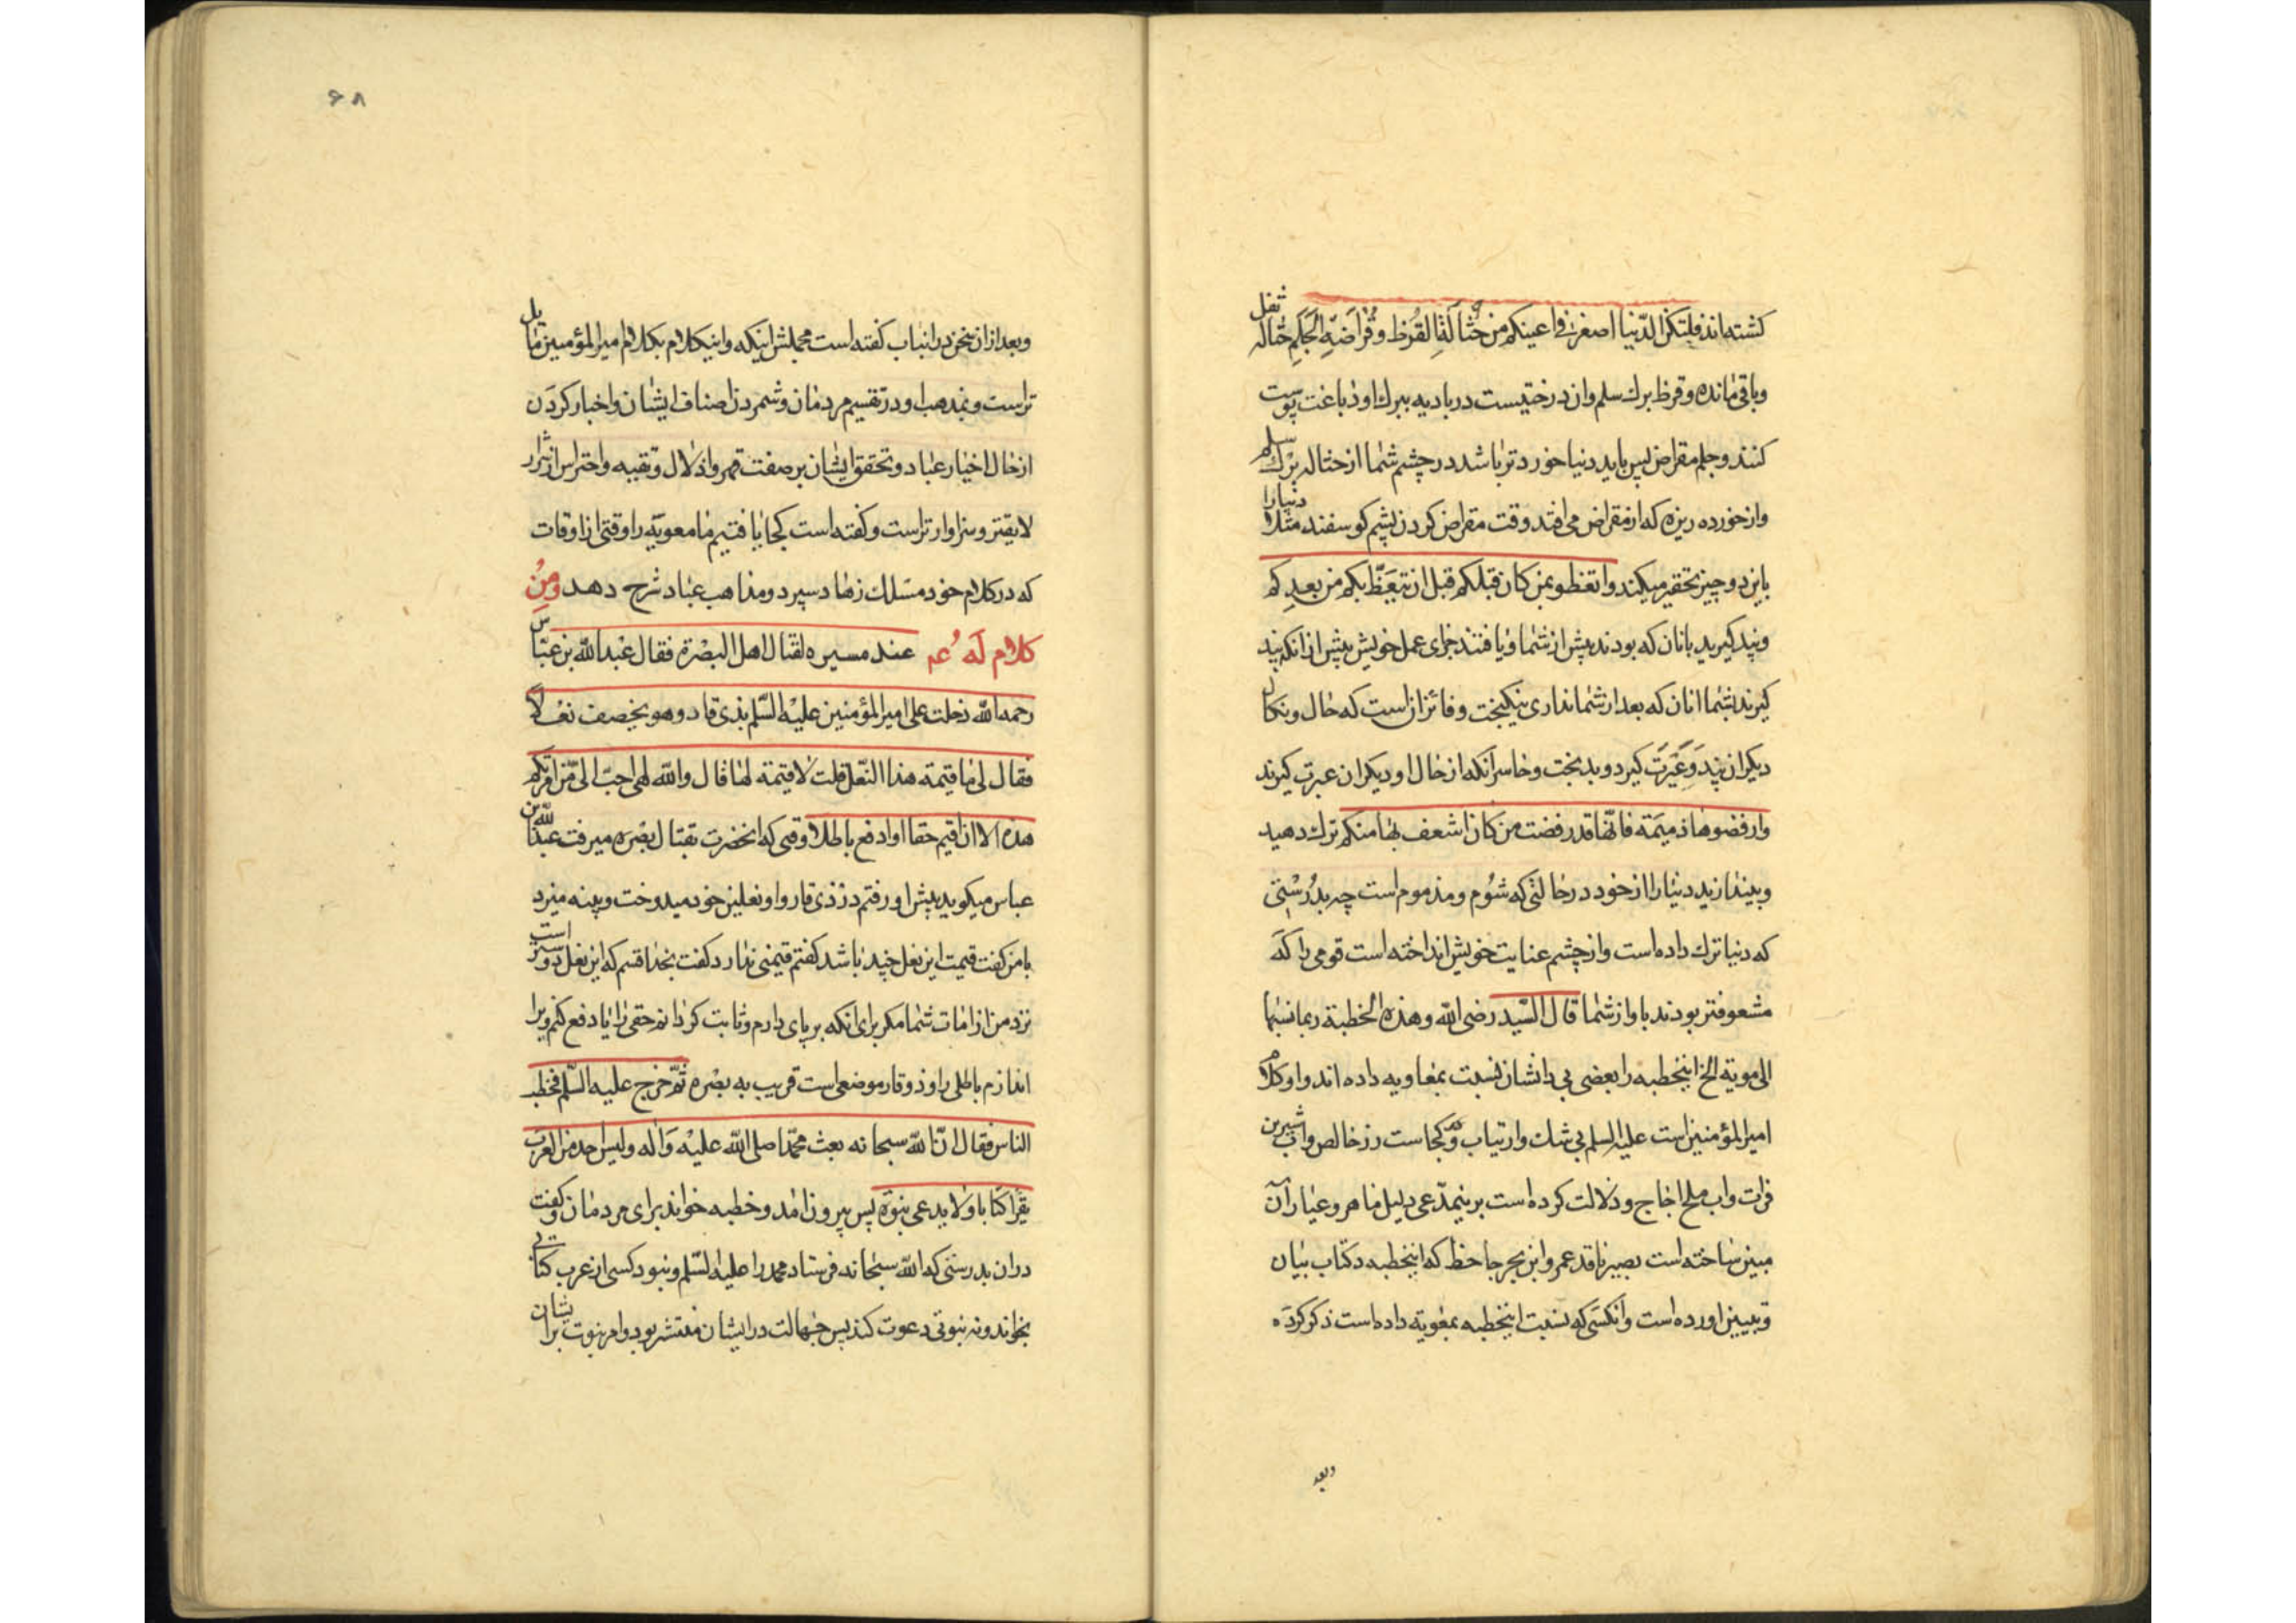 کشته‌اند فلتکن الدّنیا اصغر فی اعینکم من حُثالَةِ القَرَظ و قُراضَةِ الجَلَمِ حثاله ثفل
و باقی مانده و قرظ برک سلم و ان درختیست در بادیه ببرک او دباغت پوست
کنند و جلم مقراض پس باید دنیا خوردتر باشد در چشم شما از حثاله برک سلم
و از خورده ریزه که از مقراض می افتد وقت مقراض کردن پشم کوسفند مثلا دنیا را
باین دو چیز تحقیر میکند و اتعظو بمن کان قبلکم قبل ان تیعَظَّ بکم من بعدِکم
و پند کیرید بانان که بودند پیش از شما و یافتند جزای عمل خویش پیش از انکه پند
کیرند بشما انان که بعد از شما نداری نیکبخت و فائز ان است که حال و نکال
دیکران پند وَ عَیْرَت کیرد و بدبخت و خاسر آنکه از حال او دیکران عبرت کیرند
وارفضوها ذمیَمة فانّها قد رفضت من کان اشعف بها منکم ترک دهید
و بیندازید دنیا را از خود در حالتی که شوُم و مذموم است چه بدُرُسْتی
که دنیا ترک داده است و از چشم عنایت خویش انداخته است قومی را که
مشعوفتر بودند باو از شما قال السّید رضی الله و هذه الخطبة ربما نسبها
الی مویة الخ اینخطبه را بعضی بی دانشان نسبت بمعاویه داده اند و او کلام
امیرالمؤمنین است علیه السلم بی شک و ارتیاب و کجاست زر خالص و اب شیرین
فرات و اب ملح اجاج و دلالت کرده است برینمدّعی دلیل ماهر و عیار آن
مبین ساخته است بصیر ناقد عمرو ابن بحر جاحظ که اینخطبه در کتاب بیان
و تبیین اورده است و انکسَی که نسبت اینخطبه بمعویة داده است ذکر کردَه
وبعد
۶۸
و بعد از ان سخن در انباب کفته است مجملش اینکه و اینکلام بکلام امیرالمؤمنین مایل
تراست و بمذهب او در تقسیم مردمان و شمردن اصناف ایشان و اخبار کردَن
از حال اخیار عباد و تحقق ایشان بر صفت قهر و اذلال و تقیه و احتراس از شرار
لایقتر و سزاوارتر است و کفته است کجا یافتیم ما معویَه را وقتی از اوقات
که در کلام خود مسَلک زهاد سپرد و مذاهب عباد شرح دهد ومِنُ
کلام لَه عم عند مسیره لقتال اهل البصْرة فقال عبْدالله بن عبّاس
رحمه الله دخلت علی امیرالمؤمنین علیْه السّلم بذی قار و هو یخصف نعْلاً
فقال لی ما قیمة هذا النّعل قلت لا قیمة لها قال والله لهی احبّ الی من امرتکم
هذه الا ان اقیم حقا او ادفع باطلا وقتی که انحضرت بقتال بصْره میرفت عبْدالله بن
عباس میکوید پیش او رفتم در ذی قار و او نعلین خود میدوخت و پینه میزد
با من کفت قیمت این نعل چند باشد کفتم قیمتی ندارد کفت بخدا قسم که این نعل دوستر است
نزد من از امارت شما مکر برای انکه بر پای دارم و ثابت کردانم حقی را یا دفع کنم و برا
اندازم باطلی را و ذوقار موضعی است قریب به بصْره ثمّ خرج علیه السّلم فخطب
الناس فقال انّ الله سبحانه بعث محمّدا صلی الله علیْه وَ اله و لیس احد من العرب
یقرَا کتابا و لا یدعی نبوّة پس بیرون امد و خطبه خواند برای مردمان و کفت
در ان بدرستی که الله سبحانه فرستاد محمد را علیه السّلم و نبود کسی از عرب کتابی
بخواند و نه نبوتی دعوت کند پس جهالت در ایشان منتشر بود و امر نبوت بر ایشان